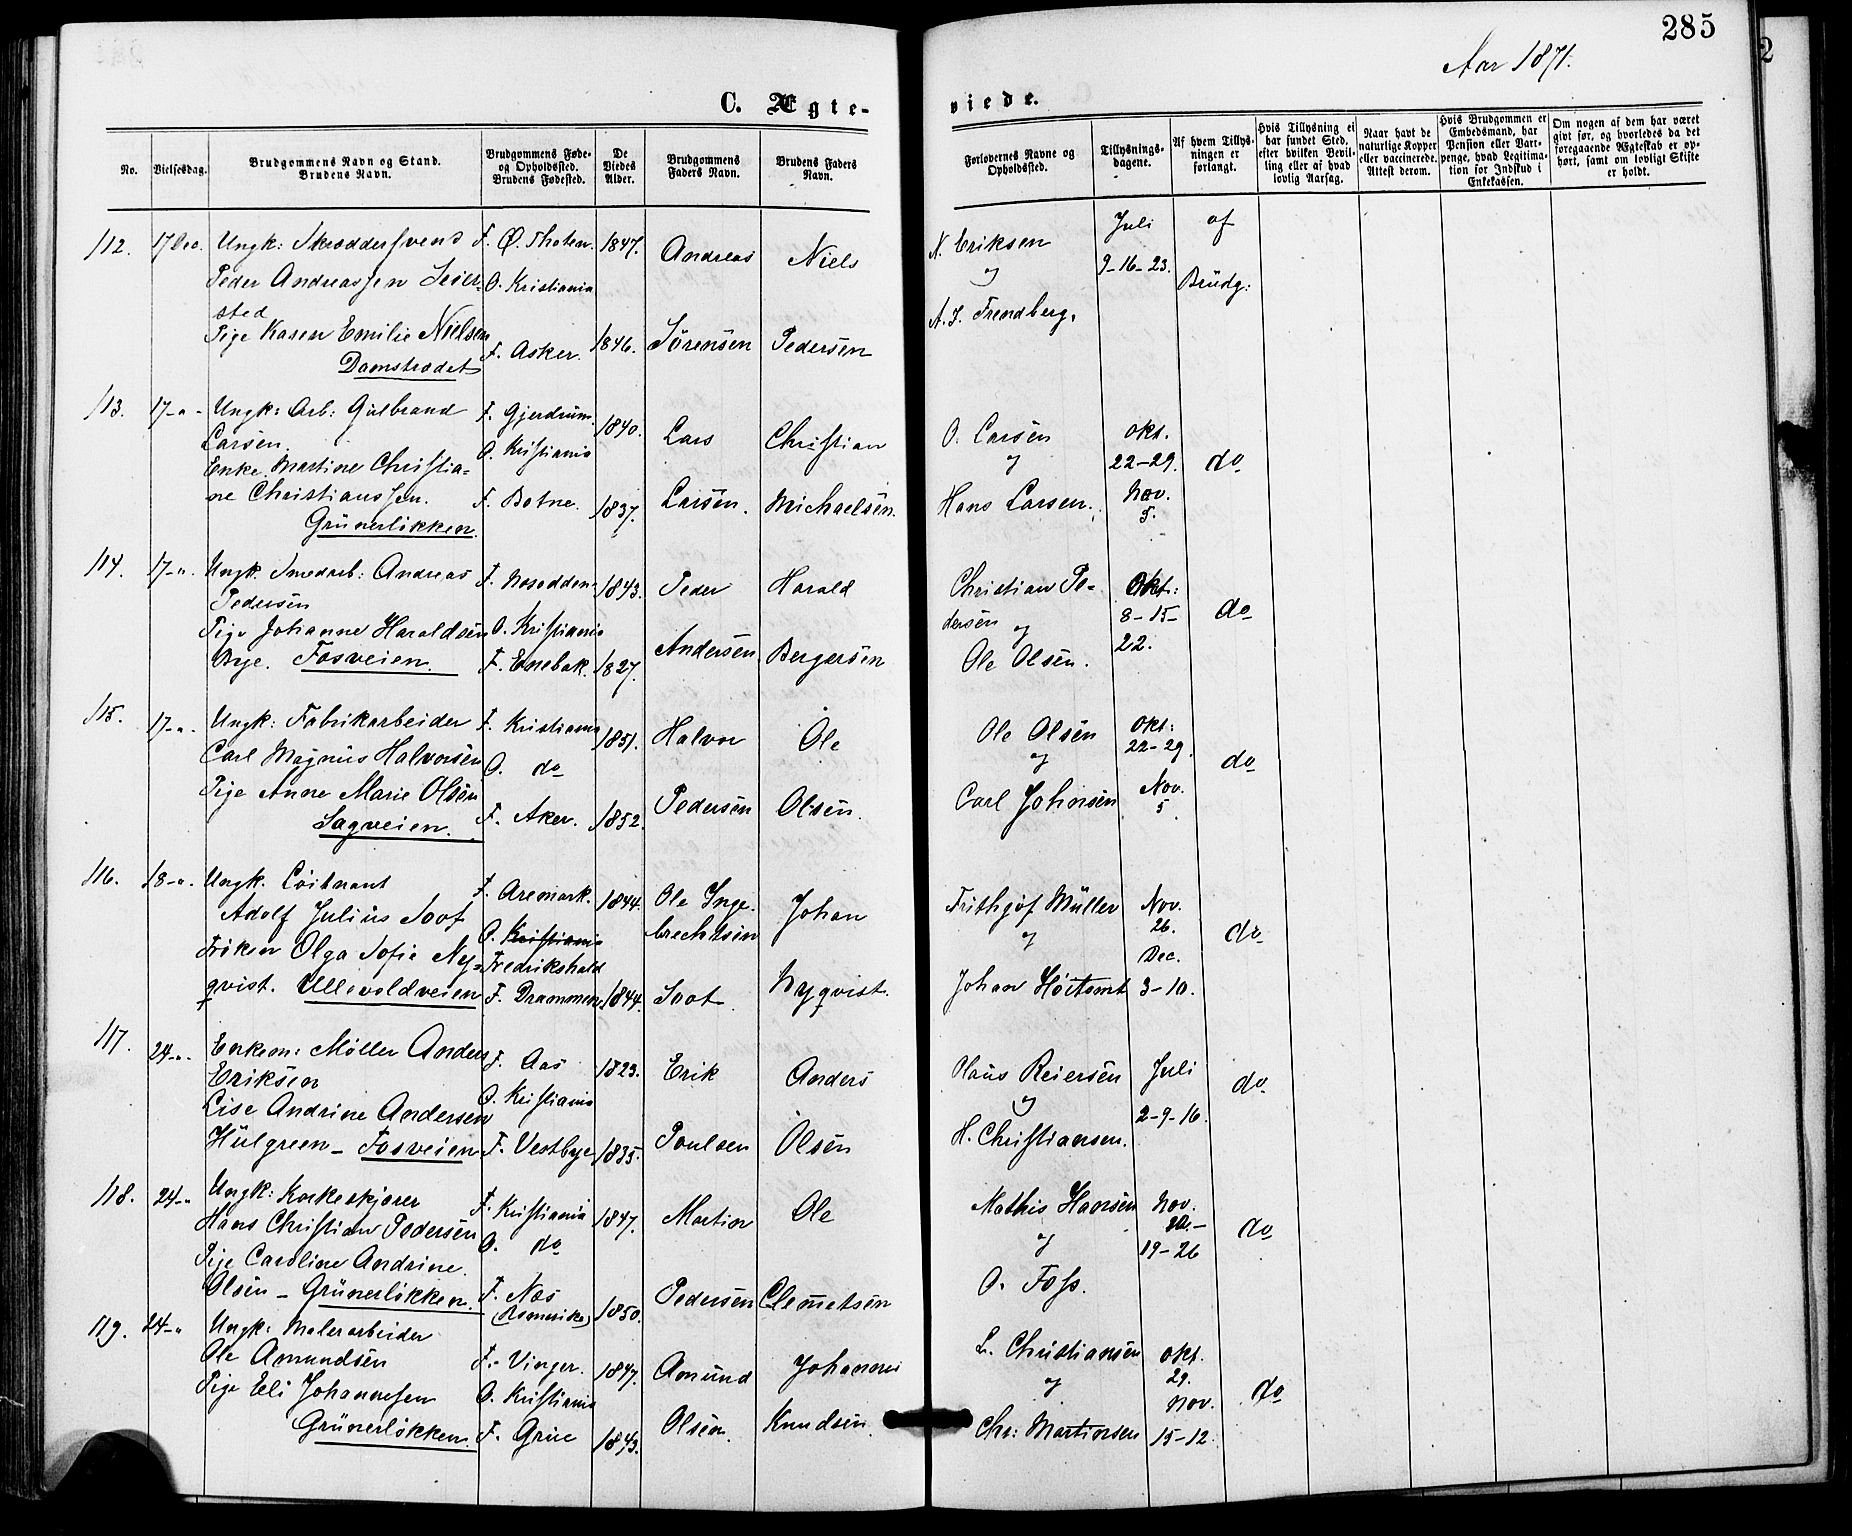 285
Aar 1871.
C. Ægte-
viede.
No.
Vielsesdag.
Brudgommens Navn og Stand.
Brudens Navn.
Brudgommens Føde-
og Opholdssted.
Brudens Fødested.
De
Viedes
Alder.
Brudgommens
Faders Navn.
Brudens Faders
Navn.
Forlovernes Navne og
Opholdssted.
Tillysnings-
dagene.
Af hvem Tillys-
ningen er
forlangt.
Hvis Tillysning ei
har fundet Sted,
efter hvilken Bevil-
ling eller af hvad
lovlig Aarsag.
Naar havt de
naturlige Kopper
eller vaccinerede.
Attest derom.
Hvis Brudgommen er
Embedsmand, har
Pension eller Vart-
penge, hvad Legitima-
tion for Indskud i
Enkekassen.
Om nogen af dem har været
givt før, og hvorledes da det
foregaaende Ægteskab er op-
hørt, samt om lovligt Skifte
er holdt.
112. 17 Dec. Ungk: Skræddersvend F. Ø. Thoten. 1847. Andreas Niels N. Eriksen Juli af
Peder Andreassen Seier- O. Kristiania og 9-16-23. Brudg:
sted
Pige Karen Emilie Nielsen F. Asker. 1846. Sörensen Pedersen A. J. Trendberg.
Damstrædet
113. 17-"- Ungk: Arb: Gulbrand F. Gjerdrum. 1840. Lars Christian O. Larsen Okt. do
Larsen. O. Kristiania og 22-29.
Enke Martine Christia-
ne Christianssen. F. Botne. 1837. Larsen. Michaelsen. Hans Larsen. Nov.
Grünerløkken. 5.
114. 17-". Ungk. Smedarb: Andreas F. Nesodden. 1843. Peder Harald Christian Pe- Okt: do
Pedersen dersen og 8-15-
Pige Johanne Haraldsen O. Kristiania Andersen Bergersen Ole Olsen. 22.
Bye. Fosveien. F. Enebak. 1827.
115. 17-". Ungk: Fabrikarbeider F. Kristiania 1851. Halvor Ole Ole Olsen Okt: do
Carl Magnus Halvorsen O. do og 22-29.
Pige Anne Marie Olsen Pedersen Olsen. Carl Johnsen Nov.
Sagveien. F. Aker. 1852. 5.
116. 18-". Ungk. Løitnant F. Aremark. 1844. Ole Inge- Johan Frithjof Müller Nov. do
Adolf Julius Soot O. Kristiania brechtsen og 26.
Frøken Olga Sofie Ny- Fredrikshald Dec.
qvist. Ullevoldveien F. Drammen. 1844. Soot. Nyqvist. Johan Høitomt 3-10.
117. 24-". Enkem: Møller Anders F. Aas 1823. Erik Anders Claus Reiersen Juli do
Eriksen O. Kristiania og 2-9-16.
Lise Andrine Andersen
Hulgreen - Fosveien F. Vestbye 1835. Poulsen Olsen H. Christiansen.
118. 24-" Ungk: Korkeskjærer F. Kristiania 1847. Martin Ole Mathis Hansen Nov. do
Hans Christian Pedersen O. do og 19-26
Pige Caroline Andrine
Olsen - Grünerløkken. F. Næs (Romerike) 1850. Pedersen Clemetsen O. Foss.
119. 24-" Ungk: Malerarbeider F. Vinger. 1847. Amund Johannes L. Christiansen Okt. do
Ole Amundsen O. Kristiania og 29.
Pige Eli Johannesen Nov.
Grünerløkken. F. Grue 1843. Olsen. Knudsen. Chr: Martinsen 15-12.